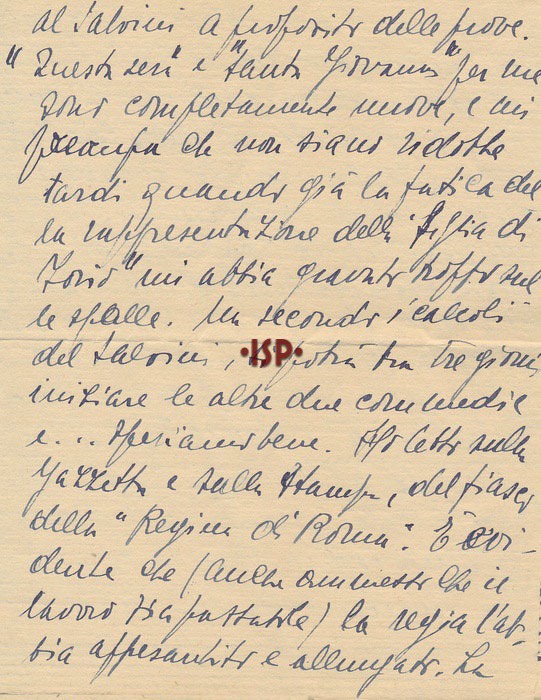 al Salvini a proposito delle prove.
"Questa sera" e "Santa Giovanna" per me
sono completamente nuove, e mi
preoccupa che non siano ridotte
tardi quando già la fatica del
la rappresentazione della "Figlia di
Iorio" mi abbia gravato troppo sul
le spalle. Ma secondo i calcoli
del Salvini, si potrà tra tre giorni
·ISP·
iniziare le altre due commedie
e... speriamo bene. Ho letto sulla
Gazzetta e sulla Stampa, del fiasco
della "Regina di Roma". È evi-
dente che (anche ammesso che il
lavoro sia passabile) la regia l'ab-
bia appesantito e allungato. La